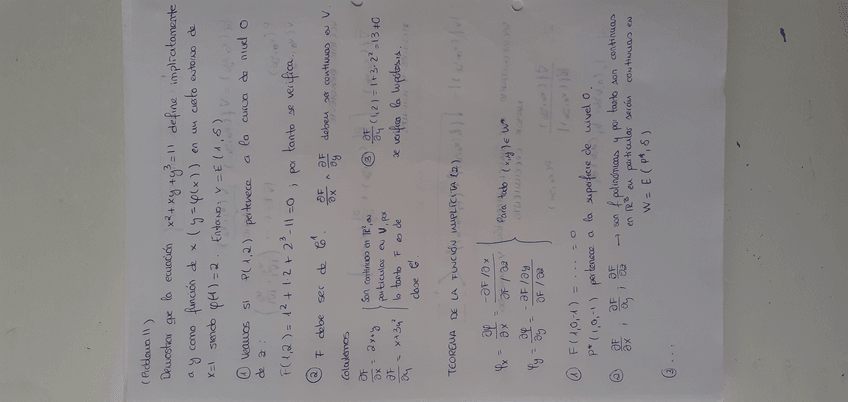 (Problema 11)
Demostrar que la ecuación x²+xy+y³=11 define implícitamente
a y como función de x (y=φ(x)) en un cierto entorno de
x=1 siendo φ(1)=2. Entorno: V=E(1,δ)
① Veamos si P(1,2) pertenece a la curva de nivel 0
de z:
F(1,2)=1²+1·2+2³-11=0; por tanto se verifica.
② F debe ser de C¹. ∂F/∂x ∧ ∂F/∂y deben ser continuas en V.
Calculamos
∂F/∂x = 2x+y
∂F/∂y = x+3y²
Son continuas en ℝ², en
particular en V, por
lo tanto F es de
clase C¹
③ ∂F/∂y (1,2)=1+3·2²=13≠0
se verifica la hipótesis.
TEOREMA DE LA FUNCIÓN IMPLÍCITA (2)
φx = ∂φ/∂x = -∂F/∂x / ∂F/∂z
φy = ∂φ/∂y = -∂F/∂y / ∂F/∂z
Para todo (x,y) ∈ W*
① F(1,0,-1) = ..... = 0
P*(1,0,-1) pertenece a la superficie de nivel 0.
② ∂F/∂x, ∂F/∂y, ∂F/∂z → son f polinómicas y por tanto son continuas
en ℝ³ en particular serán continuas en
W = E(P*,δ)
③ ....